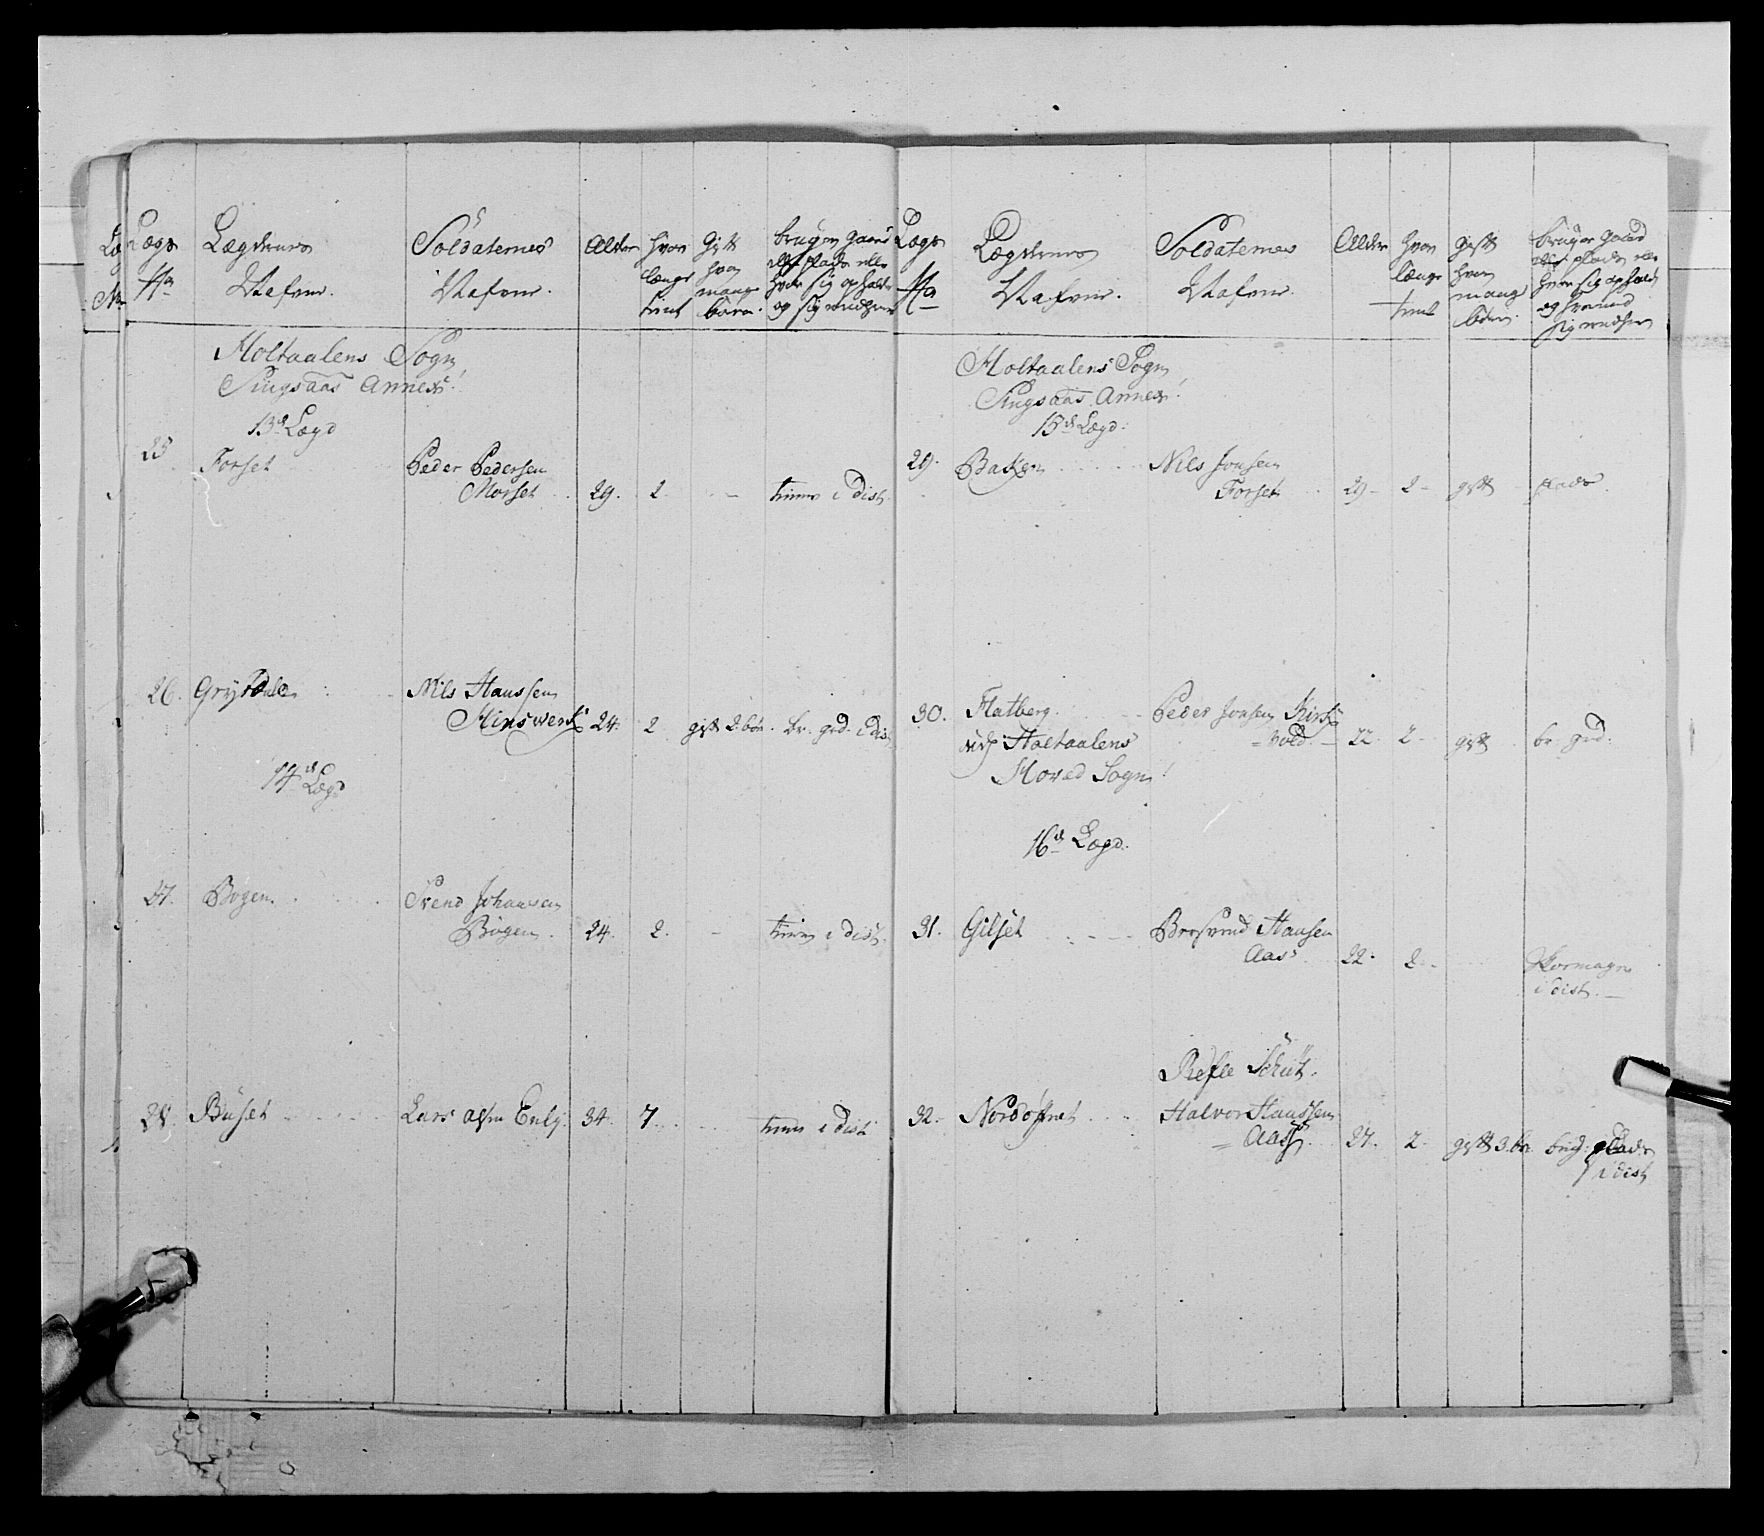 Lægs No
Lægdernes Nafne.
Soldaternes Nafne.
Alder
hvor længe tient
Gift hvor mange børn.
bruger gaard eller plads eller hvor sig opholder og sig
Holtaalens Sogn
Singsaas Annex!
13de Lægd
25 Forset Peder Pedersen
Morset 29. 2. - tiener i Dist.
26. Grytdale Nils Hanssen
24. 2 gift 2 bør. br. grd. i dis
14de Lægd
27. Bogen. Svend Johansen
Bogen. 24. 2. - tiener i dist.
28. Buset Lars Enlg. 34. 7. tiener i dist
Lægs No
Lægdernes Nafne.
Soldaternes Nafne.
Alder
hvor længe tient
gift hvor mange børn.
bruger gaard eller plads eller hvor sig opholder og hvormed sig
Holtaalens Sogn
Singsaas Annex!
15de Lægd.
29. Baken Nils Jonsen
Forset 29 - 2 - gift plads
30. Flatberg. Peder Jonsen Kirk
= vold. - 22. 2 gift br. grd.
Holtaalens
Hoved Sogn!
16de Lægd.
31. Gilset Hansen
Aas 22. 2 - Skomager
i dist. -
Refle Schüt.
32. Halvor Hanssen
= Aas 27. 2. gift 3. bør brug. plads
i dist